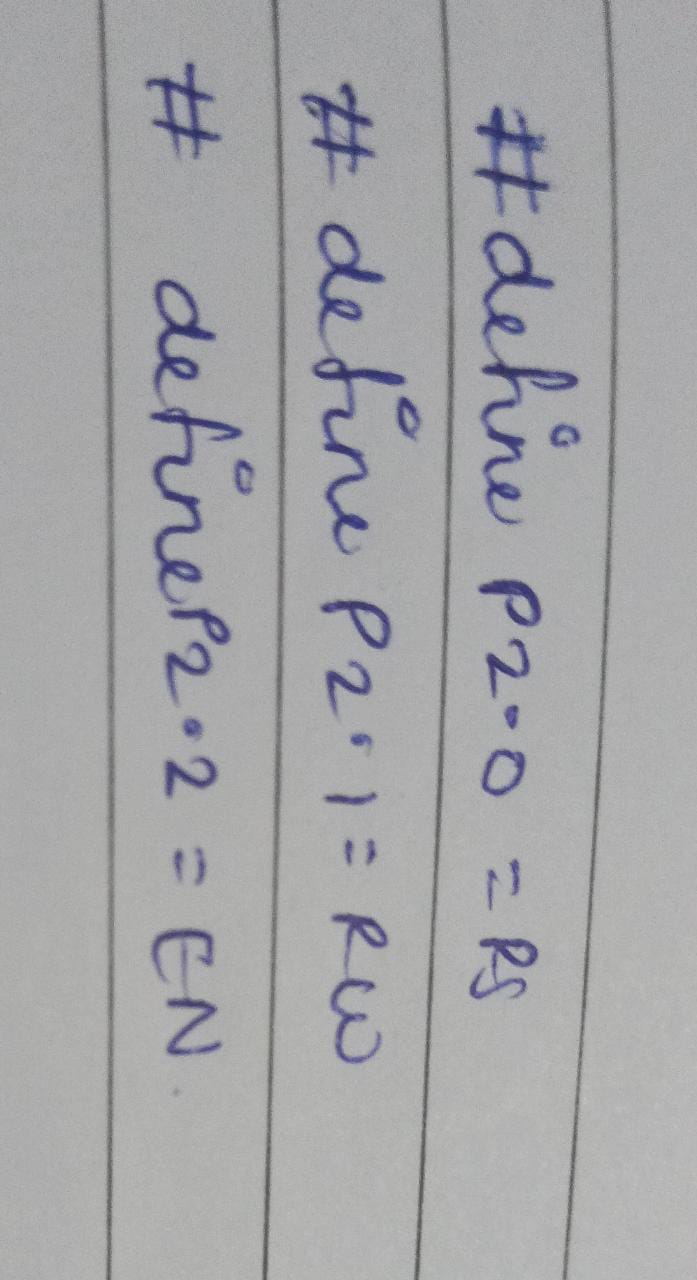 #define P2.0 = RS
# define P2.1 = RW
# define P2.2 = EN